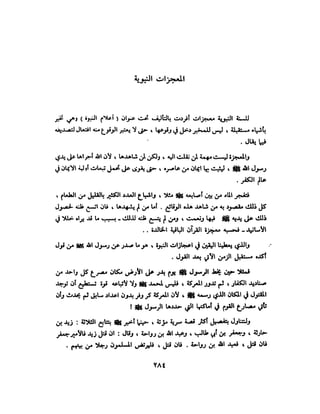 المعجزات النبوية
للسنة النبوية معجزات أفردت بالتأليف تحت عنوان ( أعلام النبوة ) وهي تخبر
بأشياء مستقبلة ، وليس للمخبر دخل في وقوعها ، حتى لا يعتبر الوقوع من افتعال الصدفة
فيها يقال .
والمعجزة ليست مهمة تنقلت إليه ، ولكن لم نشاهدها ، لأن الله أجراها على يدي
رسول الله ﷺ ، ليثبت بها الإيمان من حاضره ، حتى يقوى على تحمل تبعات أدلة الإيمان في
عالم الكفر .
فتفجر الماء من بين أصابعه ﷺ مثلا ، وإشباع العدد الكثير بالقليل من الطعام ،
كل ذلك مقصود به من شاهد هذه الوقائع . أما من لم يشهدها ، فإن اتسع ظنه لحصول
ذلك على يديه ﷺ فبها ونعمت ، ومن لم يتسع ظنه لذلك ـ بسبب ما قد يراه خلال في
الأسانيد ـ فحسبه معجزة القرآن الباقية الخالدة . .
والذي يعطينا اليقين في إعجازات النبوة ، هو ما صدر عن رسول الله ﷺ من قول
أكدته مستقبل الزمن الآتي بعد القول .
فمثلا حين يخط الرسول ﷺ يوم بدر على الأرض مكان مصرع كل واحد من
صناديد الكفار ، ثم تدور المعركة ، فليس لمحمد ﷺ ولا لأتباعه قوة تستطيع أن توجد
المقتول في المكان الذي رسمه ﷺ ، لأن المعركة كر وفر وبدون إعداد سابق ثم تحدث وأن
تأتي مصارع القوم في أماكنها التي حددها الرسول ﷺ !
ولنتناول بتفصيل أكثر قصة سرية مؤتة ، حينما أخبر ﷺ بتتابع الثلاثة : زيد بن
حارثة ، وجعفر بن أبي طالب ، وعبد الله بن رواحة ، وقال : إن قتل زيد فالأمير جعفر
فإن قتل جعفر فعبد الله بن رواحة . فإن قتل ، فليرتض المسلمون رجلا من بينهم .
٢٨٤